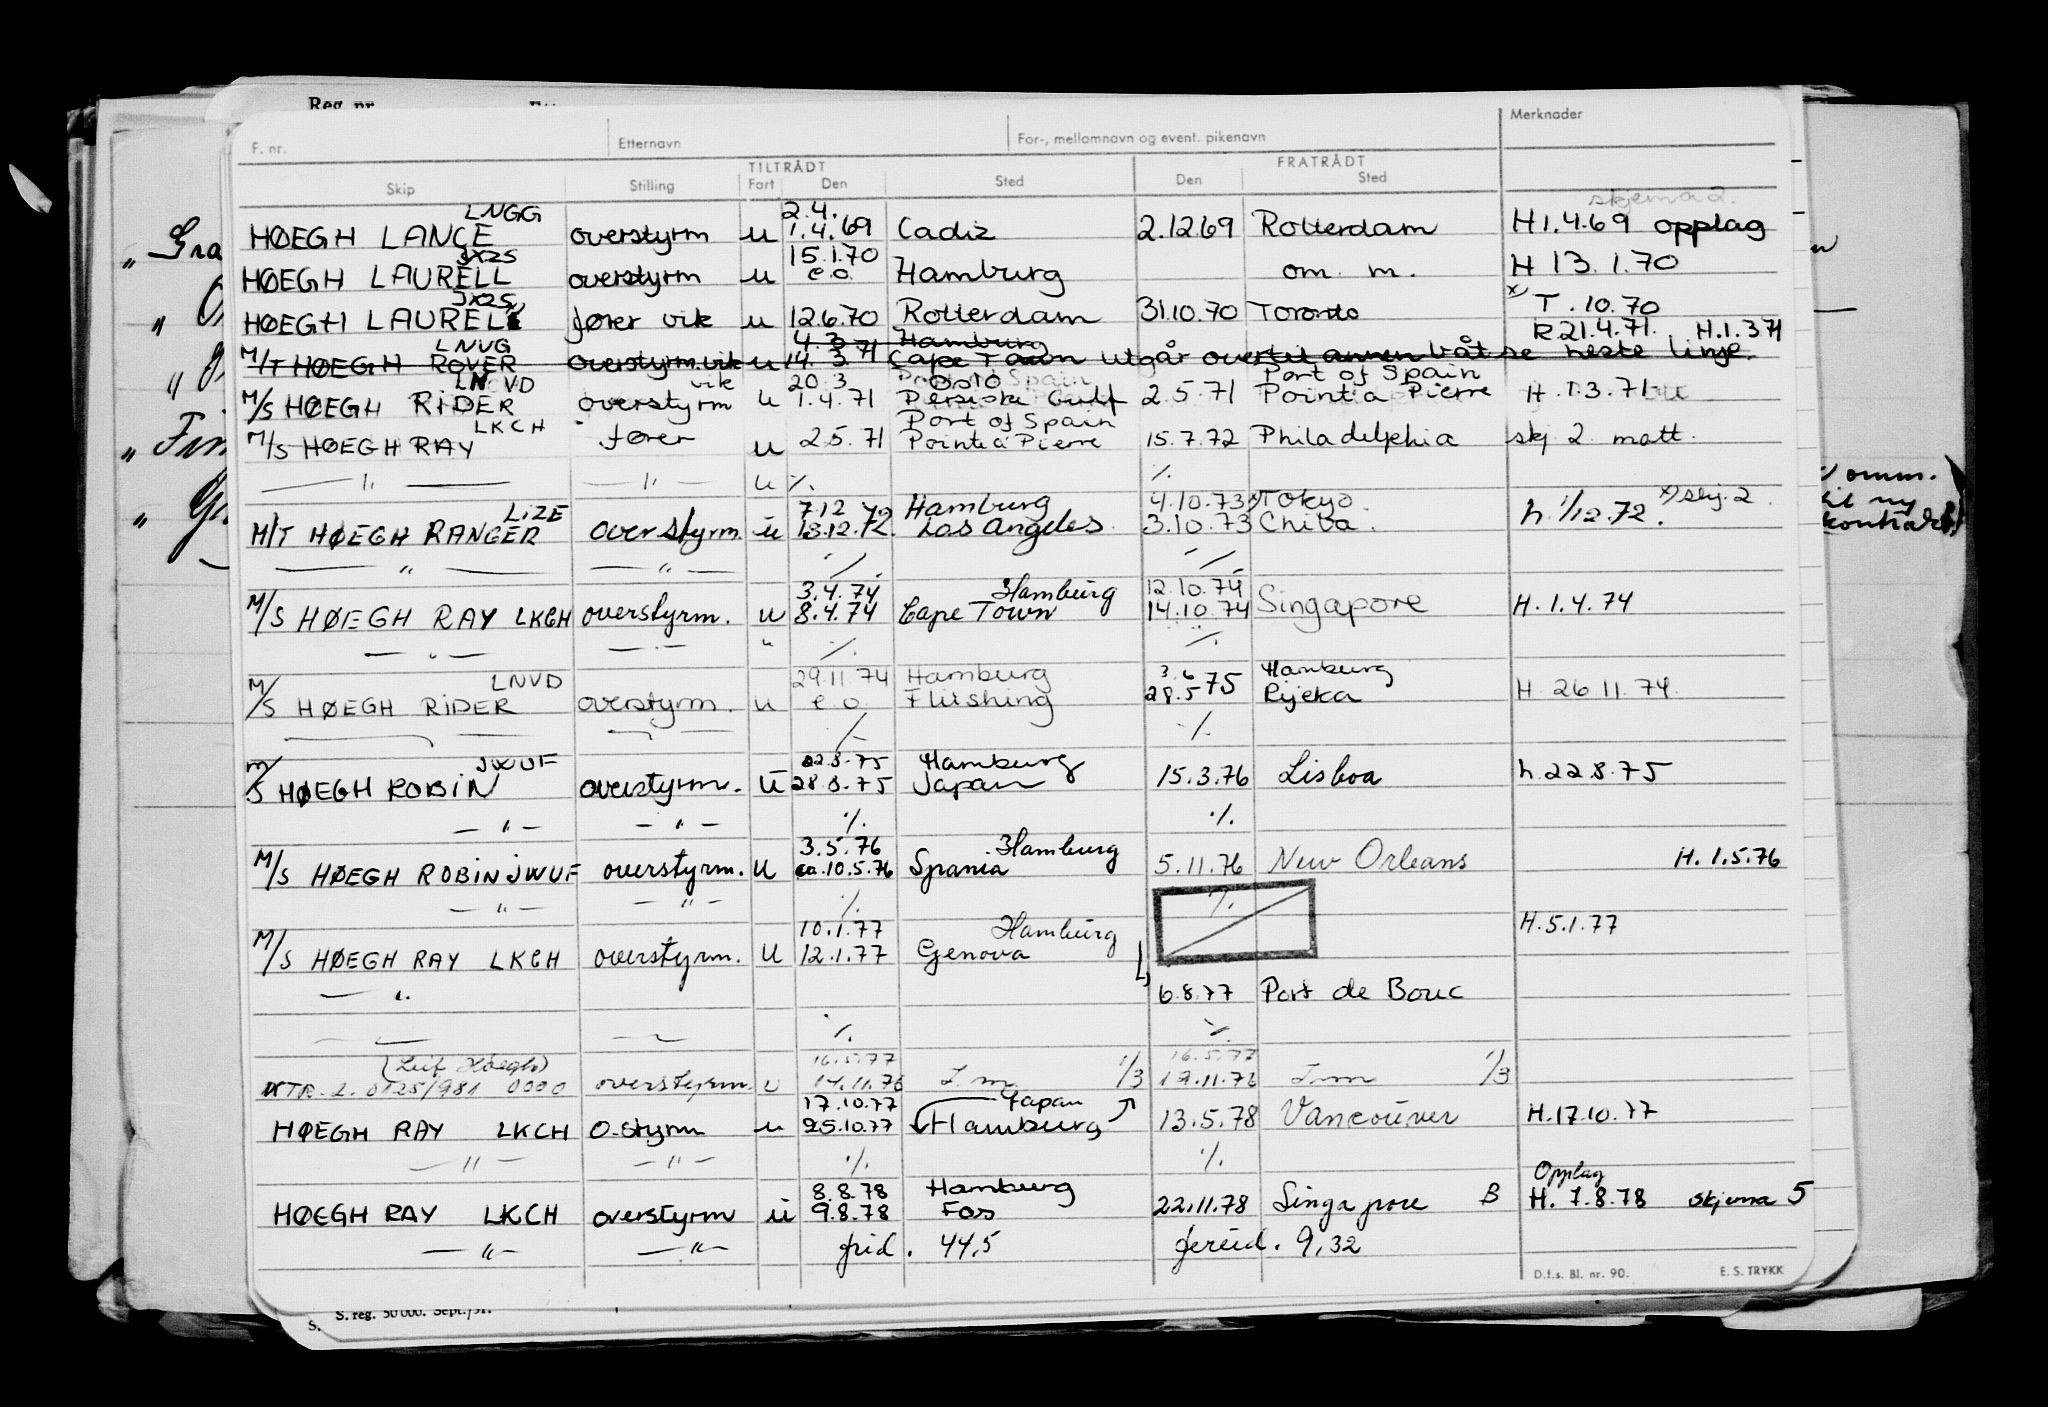 Reg. nr.
F. nr. Etternavn For-, mellomnavn og event. pikenavn Merknader
TILTRÅDT FRATRÅDT
Skip Stilling Fart Den Sted Den Sted
LNGG 2.4. skjema 2.
HØEGH LANCE overstyrm u 1.4.69 Cadiz 2.12.69 Rotterdam H 1.4.69 opplag
JX2S 15.1.70
HØEGH LAURELL overstyrm u e.o. Hamburg om. m. H 13.1.70
JX2S x) T.10.70
HØEGH LAUREL fører vik u 12.6.70 Rotterdam 31.10.70 Toronto R 21.4.71. H.1.3 71
LNVG 4.3 Hamburg
M/T HØEGH ROVER overstyrm. vik u 14.3.71 Cape Town utgår over til annen båt se neste linje.
LNVD vik 20.3 Oslo Port of Spain
M/S HØEGH RIDER overstyrm u 1.4.71 Persiske Gulf 2.5.71 Point a Pierre H.1.3.71
LKCH Port of Spain
M/S HØEGH RAY fører u 2.5.71 Pointe a Pierre 15.7.72 Philadelphia skj 2 matt.
— " — — " — u ./. ./.
LIZE 7.12 72 Hamburg 4.10.73 x) Tokyo x) skj. 2
M/T HØEGH RANGER overstyrm. u 13.12.72. Los Angeles 3.10.73 Chiba. h. 1/12.72.
— " — — " — ./. ./.
3.4.74 Hamburg 12.10.74
M/S HØEGH RAY LKCH overstyrm. u 8.4.74 Cape Town 14.10.74 Singapore H.1.4.74
— " — — " — " ./. ./.
LNVD 29.11.74 Hamburg 3.6 Hamburg
M/S HØEGH RIDER overstyrm. u e.o. Flushing 28.5 75 Rijeka H 26.11.74.
./. ./.
JWUF 22.8.75 Hamburg
M/S HØEGH ROBIN overstyrm. u 28.8.75 Japan 15.3.76 Lisboa h. 22.8.75
— " — — " — ./. ./.
3.5.76 Hamburg
M/S HØEGH ROBIN JWUF overstyrm. u ca. 10.5.76 Spania 5.11.76 New Orleans H. 1.5.76
— " — — " — ./. ./.
10.1.77 Hamburg H.5.1.77
M/S HØEGH RAY LKCH overstyrm. u 12.1.77 Genova
— " 6.8.77 Port de Bouc
./. ./.
(Leif Høegh) 16.5.77 16.5.77
KTR. 2. 0125/981 0000 overstyrm. u 14.11.76 I.m 1/3 19.11.76 I.m 1/3
17.10.77 Japan
HØEGH RAY LKCH O.styrm u 25.10.77 Hamburg 13.5.78 Vancouver H.17.10.77
— " — — " — ./. ./.
8.8.78 Hamburg Opplag
HØEGH RAY LKCH overstyrm u 9.8.78 Fos 22.11.78 Singapore B H. 7.8.78 skjema 5
— " — — " — frid. 44,5 fereid. 9,32
D.f.s. Bl. nr. 90. E. S. TRYKK
omm.
til ny
kontrakt
S. reg. 50 000. Sept./51.